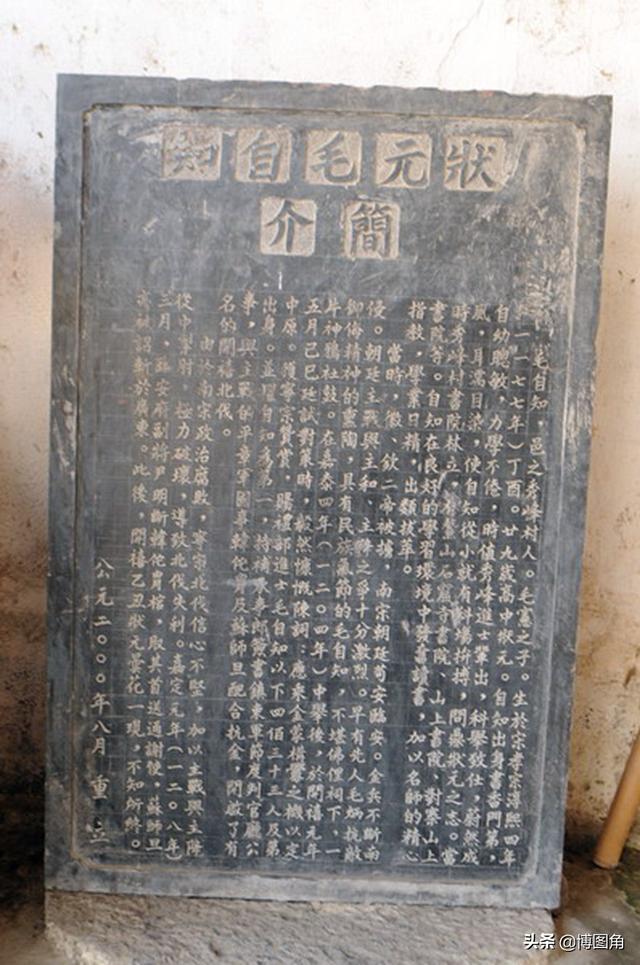 狀元毛自知
簡介
毛自知，邑之秀峰村人。毛憲之子。生於宋孝宗淳熙四年
（一一七七年）丁酉。廿九歲高中狀元。自知出身書香門第，
自幼聰敏，力學不倦，時值秀峰進士輩出，科舉致仕，蔚然成
風，耳濡目染，使自知從小就有科場拚搏，問鼎狀元之志。當
時秀峰村書院林立，有石巖寺書院、山上書院、對寨山上
書院等。自知在良好的學習環境中讀書，加以名師的精心
指教，學業日精，出類拔萃。
當時，徽、欽二帝被擄，南宋朝廷苟安臨安。金兵不斷南
侵。朝廷主戰與主和、主降之爭十分激烈。早有先人毛炳抗敵
御侮精神的熏陶，具有民族氣節的毛自知，不堪佛狸祠下，一
片神鴉社鼓。在嘉泰四年（一二0四年）中舉後，於開禧元年
五月己巳廷試對策時，毅然慷慨陳詞：應乘金蒙構釁之機以定
中原。頗寧宗贊賞，賜禮部進士毛自知以下四佰三十三人及第
出身。並擢自知為第一，特補承事郎簽書鎮東軍節度判官廳公
事，與主戰的平章軍國事韓侂胄及蘇師旦配合抗金，開啟了有
名的開禧北伐。
由於南宋政治腐敗，寧宗北伐信心不堅，加以主戰與主降
從中掣肘，極力破壞，導致北伐失利。嘉定元年（一二0八年）
三月，臨安府副將尹明斷韓侂胄棺，取其首送通謝使，蘇師旦
亦被詔斬於廣東。此後，開禧乙丑狀元曇花一現，不知所終。
公元二000年八月重立
头条 @博图角